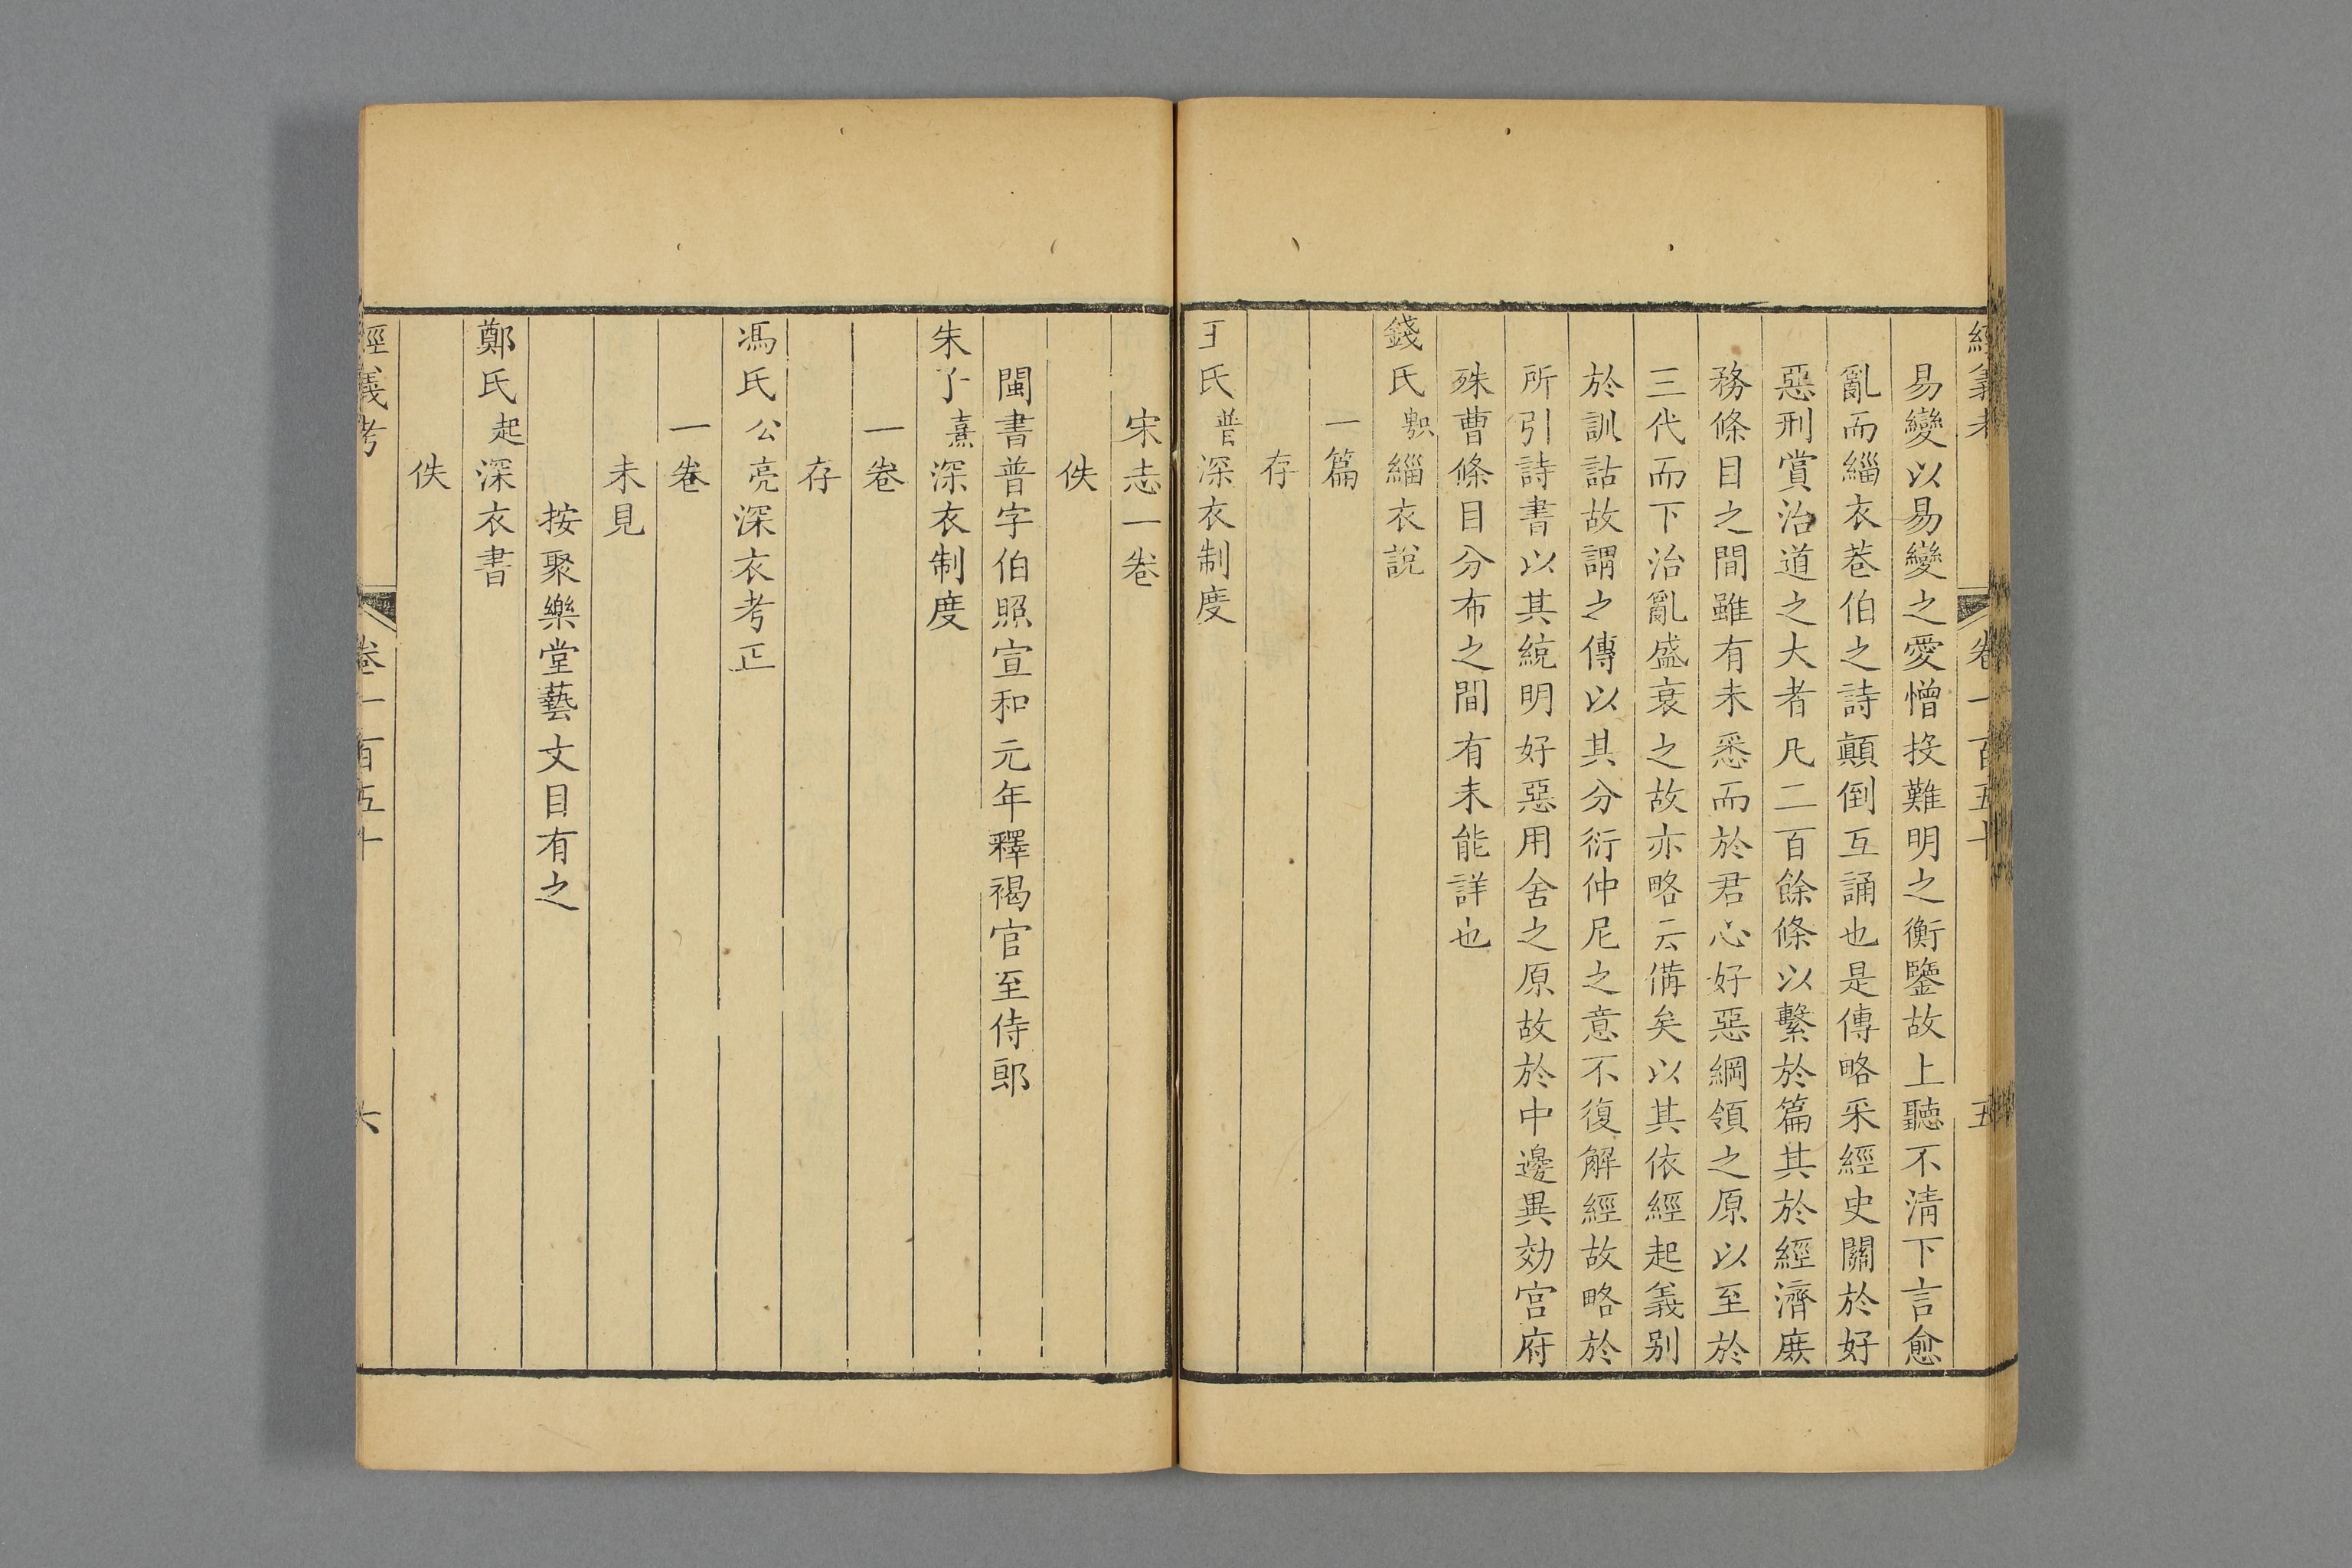 經義考 卷一百五十 五
易變以易變之愛憎投難明之衡鑒故上聽不清下言愈
亂而緇衣巷伯之詩顛倒互誦也是傳略采經史關於好
惡刑賞治道之大者凡二百餘條以繫於篇其於經濟庶
務條目之間雖有未悉而於君心好惡綱領之原以至於
三代而下治亂盛衰之故亦略云備矣以其依經起義别
於訓詁故謂之傳以其分衍仲尼之意不復解經故略於
所引詩書以其統明好惡用舍之原故於中邊異効宫府
殊曹條目分布之間有未能詳也
錢氏緇衣說
一篇
存
王氏普深衣制度
宋志一卷
佚
閩書普字伯照宣和元年釋褐官至侍郎
朱子熹深衣制度
一卷
存
馮氏公亮深衣考正
一卷
未見
按聚樂堂藝文目有之
鄭氏起深衣書
佚
經義考 卷一百五十 六